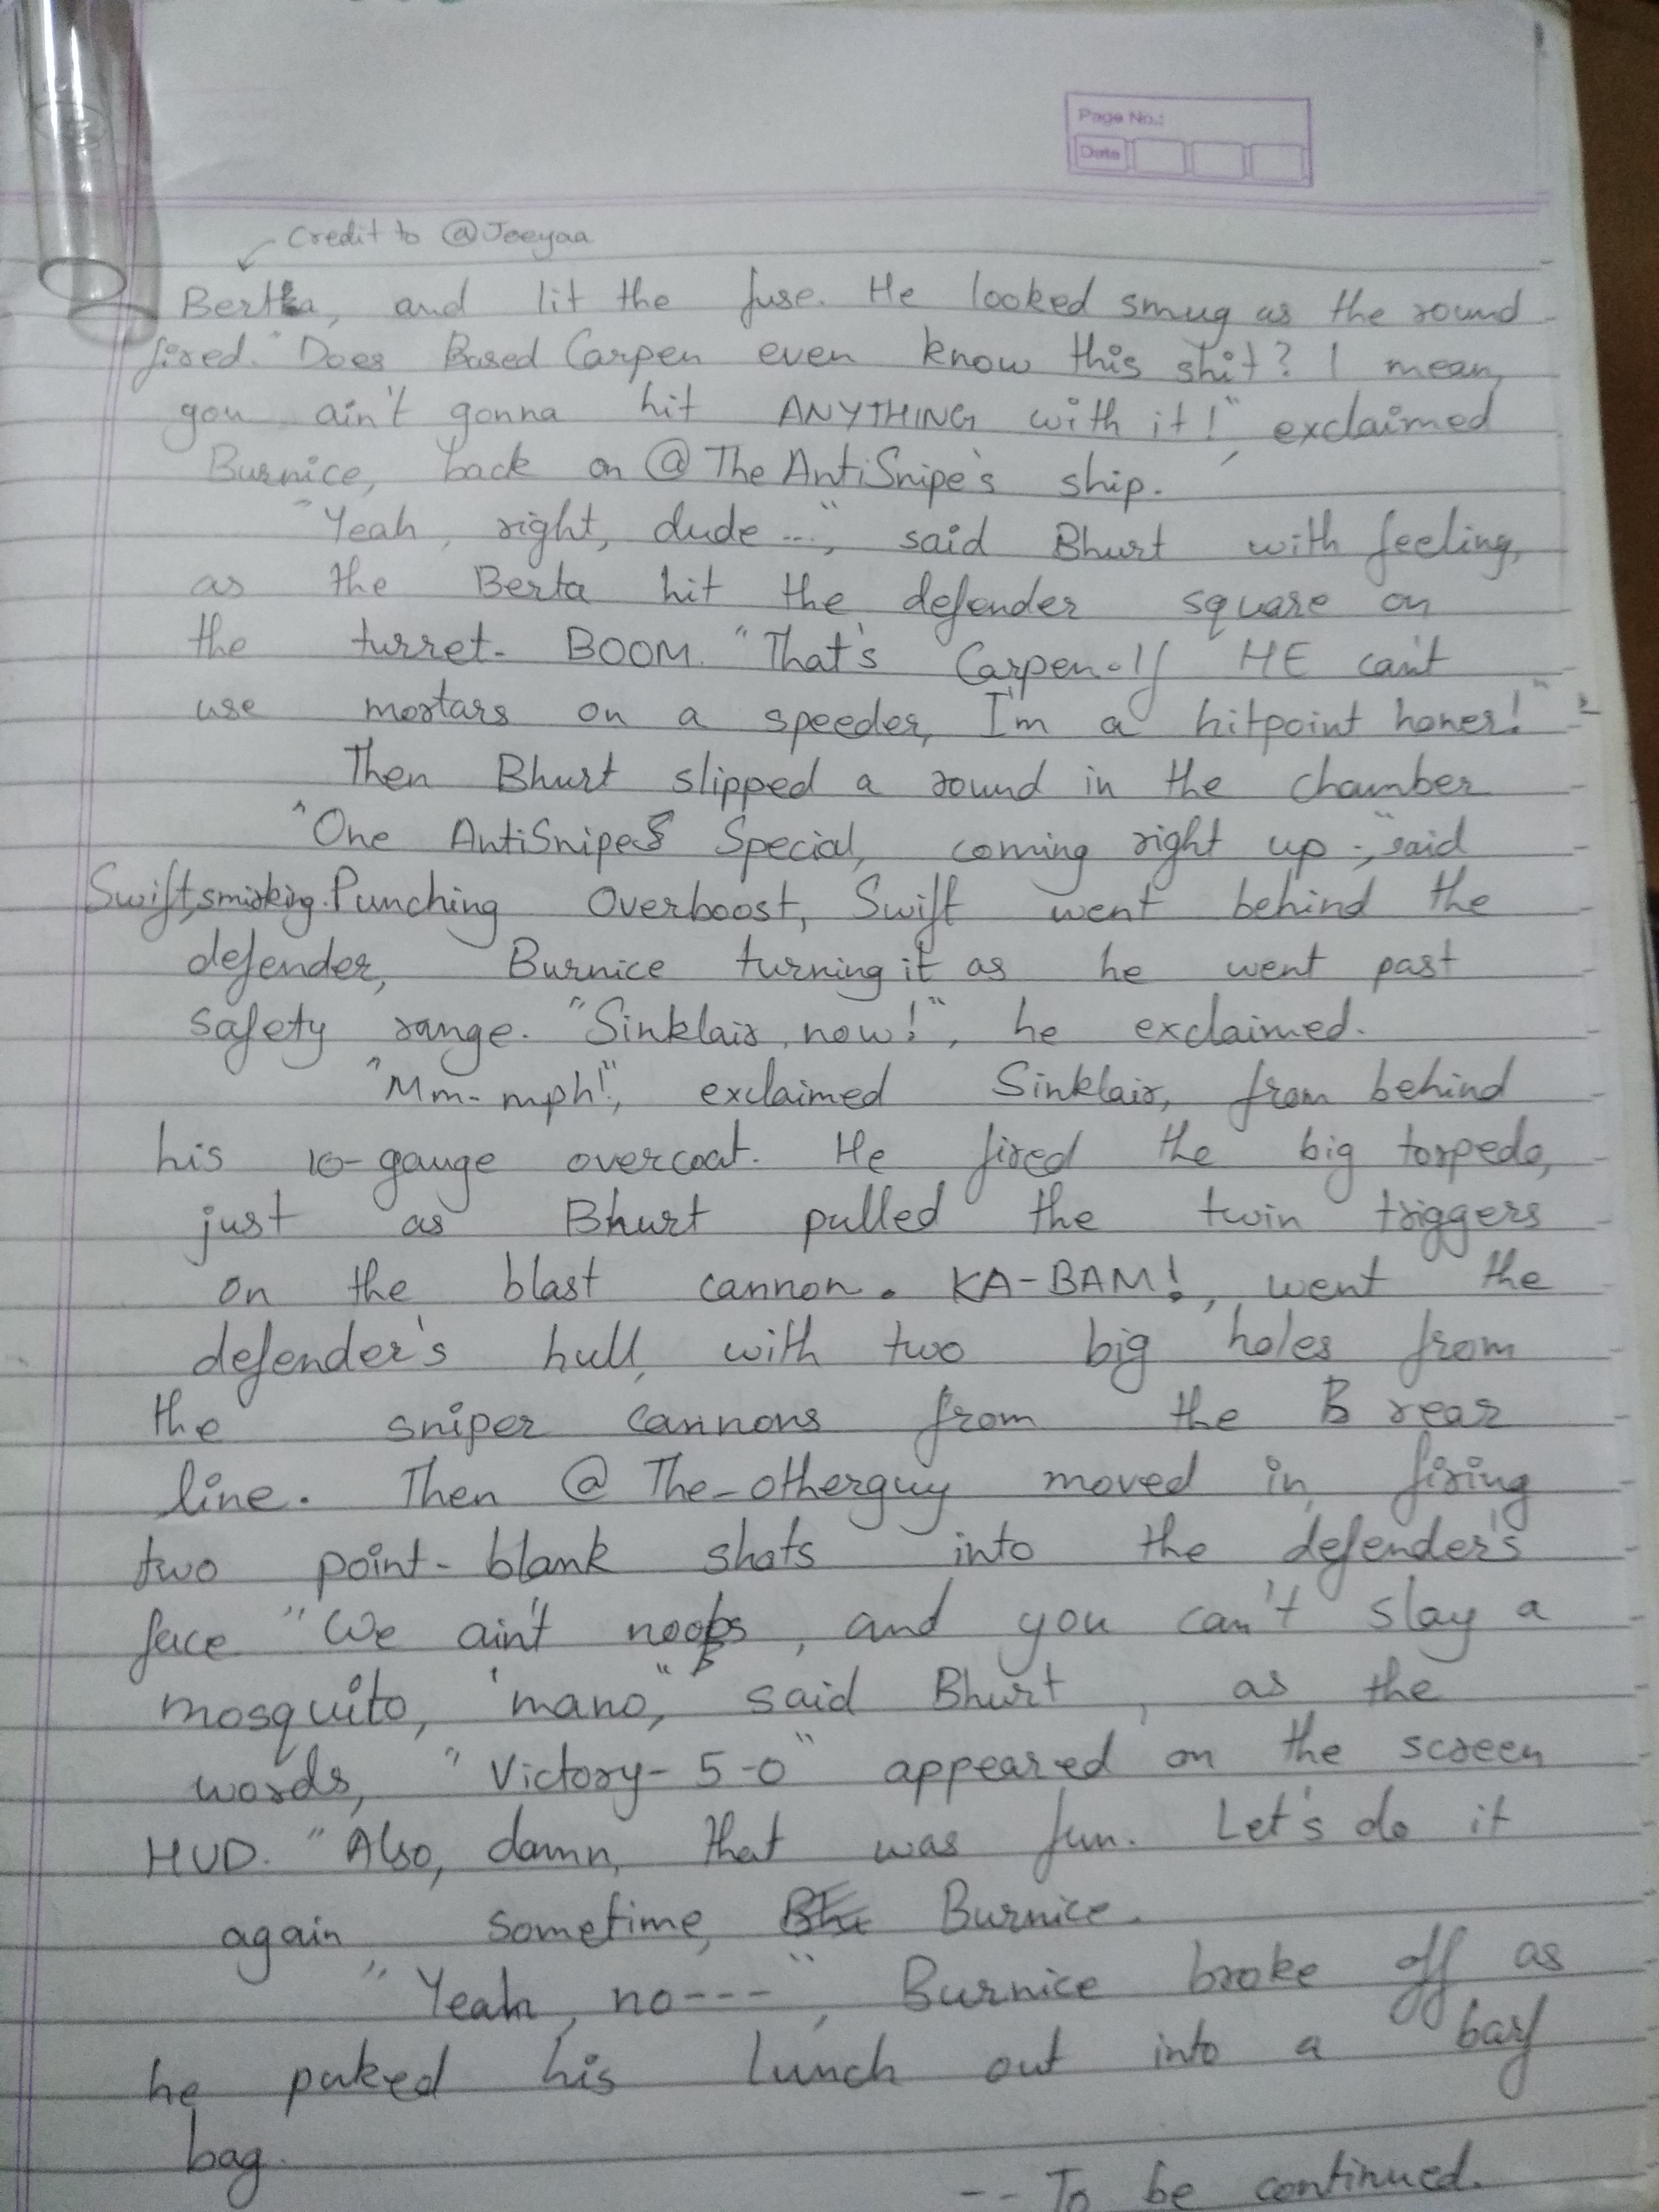 Page No.:
Date
Credit to @Joeyaa
Berta, and lit the fuse. He looked smug as the round
fired. "Does Based Carpen even know this shit? I mean,
you ain't gonna hit ANYTHING with it!", exclaimed
Burnice, back on @The AntiSnipe's ship.
"Yeah, right, dude...", said Bhurt with feeling,
as the Berta hit the defender square on
the turret- BOOM. "That's Carpen-If HE can't
use mortars on a speeder, I'm a hitpoint honer!"
Then Bhurt slipped a round in the chamber
"One AntiSnipe8 Special, coming right up-," said
Swift, smirking. Punching Overboost, Swift went behind the
defender, Burnice turning it as he went past
safety range. "Sinklair, now!", he exclaimed.
"Mm-mph!", exclaimed Sinklair, from behind
his 10-gauge overcoat. He fired the big torpedo,
just as Bhurt pulled the twin triggers
on the blast cannon. KA-BAM!, went the
defender's hull, with two big holes from
the sniper cannons from the B rear
line. Then @The-otherguy moved in, firing
two point-blank shots into the defender's
face "We ain't noobs, and you can't slay a
mosquito, 'mano," said Bhurt, as the
words, "Victory- 5-0" appeared on the screen
HUD. "Also, damn, that was fun. Let's do it
again sometime, Bhu Burnice.
"Yeah, no---", Burnice broke off as
he puked his lunch out into a barf
bag.
-- To be continued.